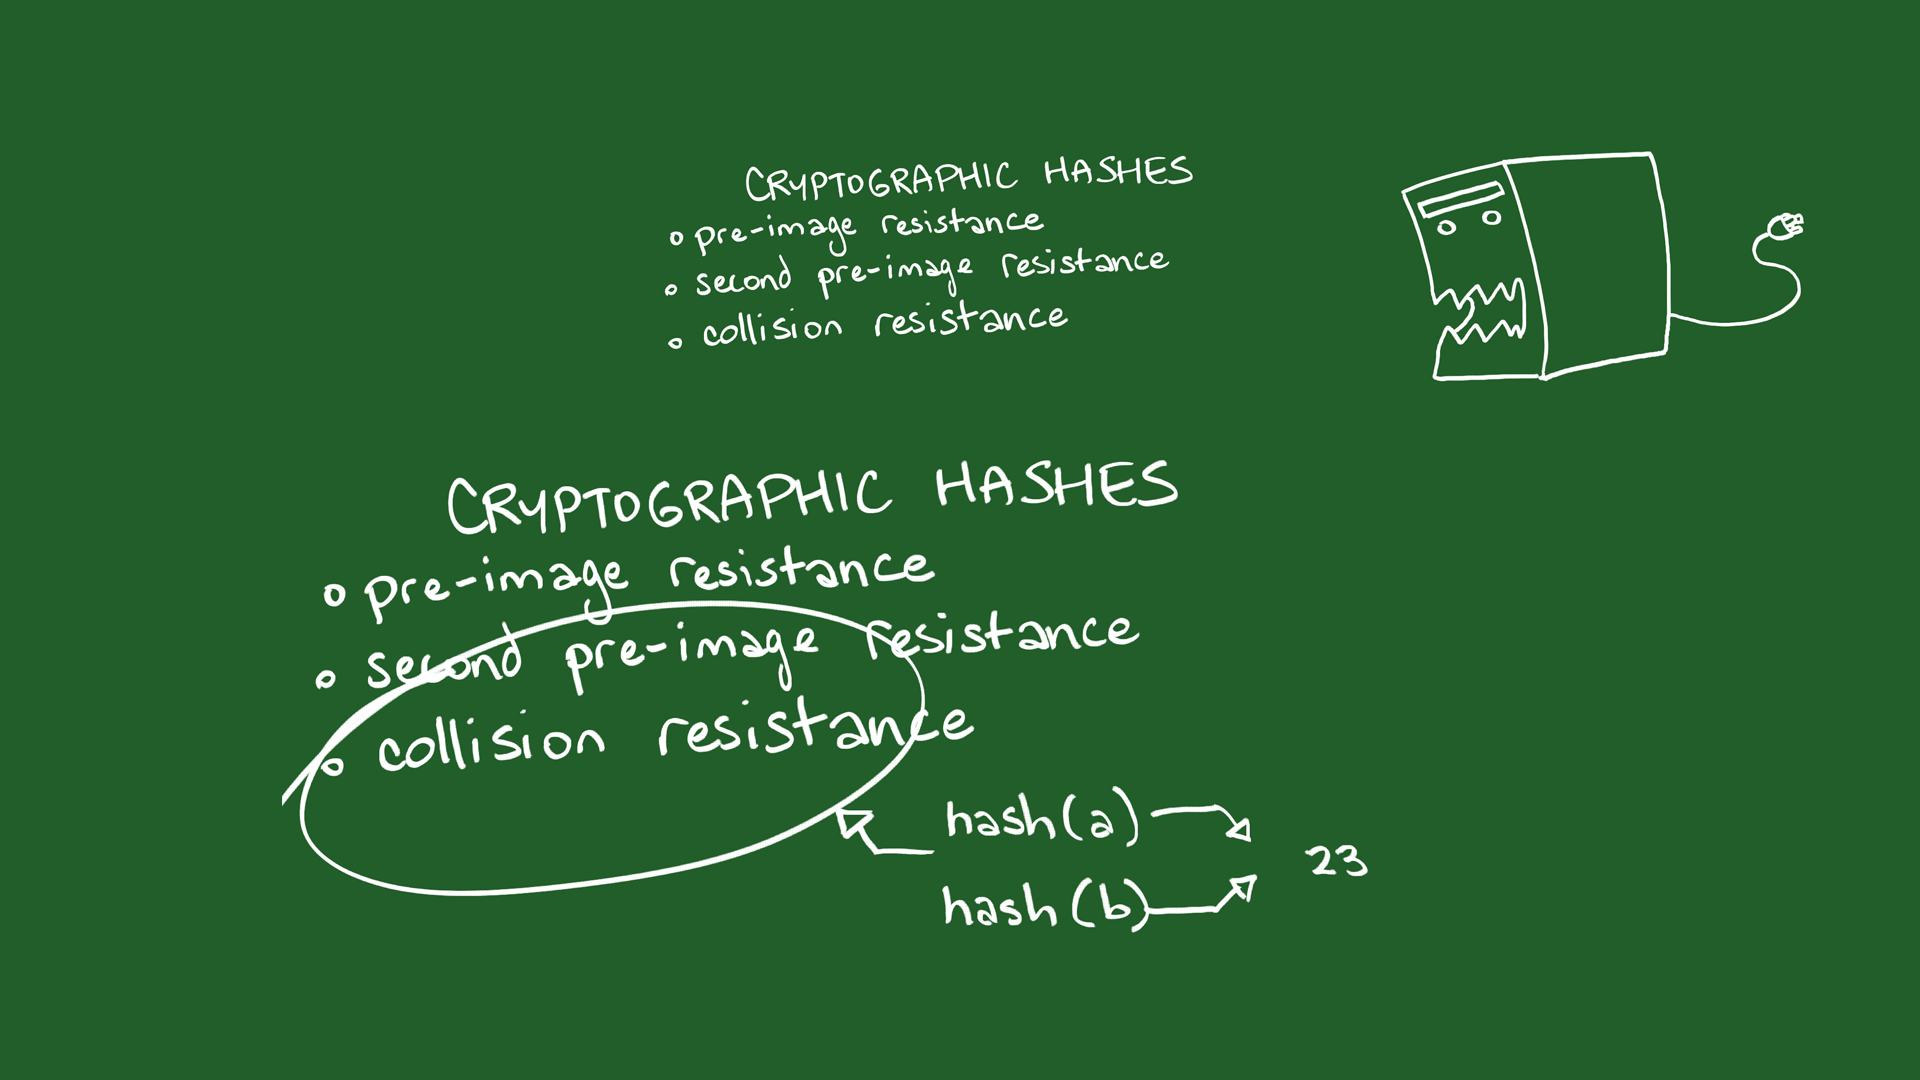 CRYPTOGRAPHIC HASHES
pre-image resistance
second pre-image resistance
collision resistance
CRYPTOGRAPHIC HASHES
pre-image resistance
second pre-image resistance
collision resistance
hash(a)
23
hash(b)